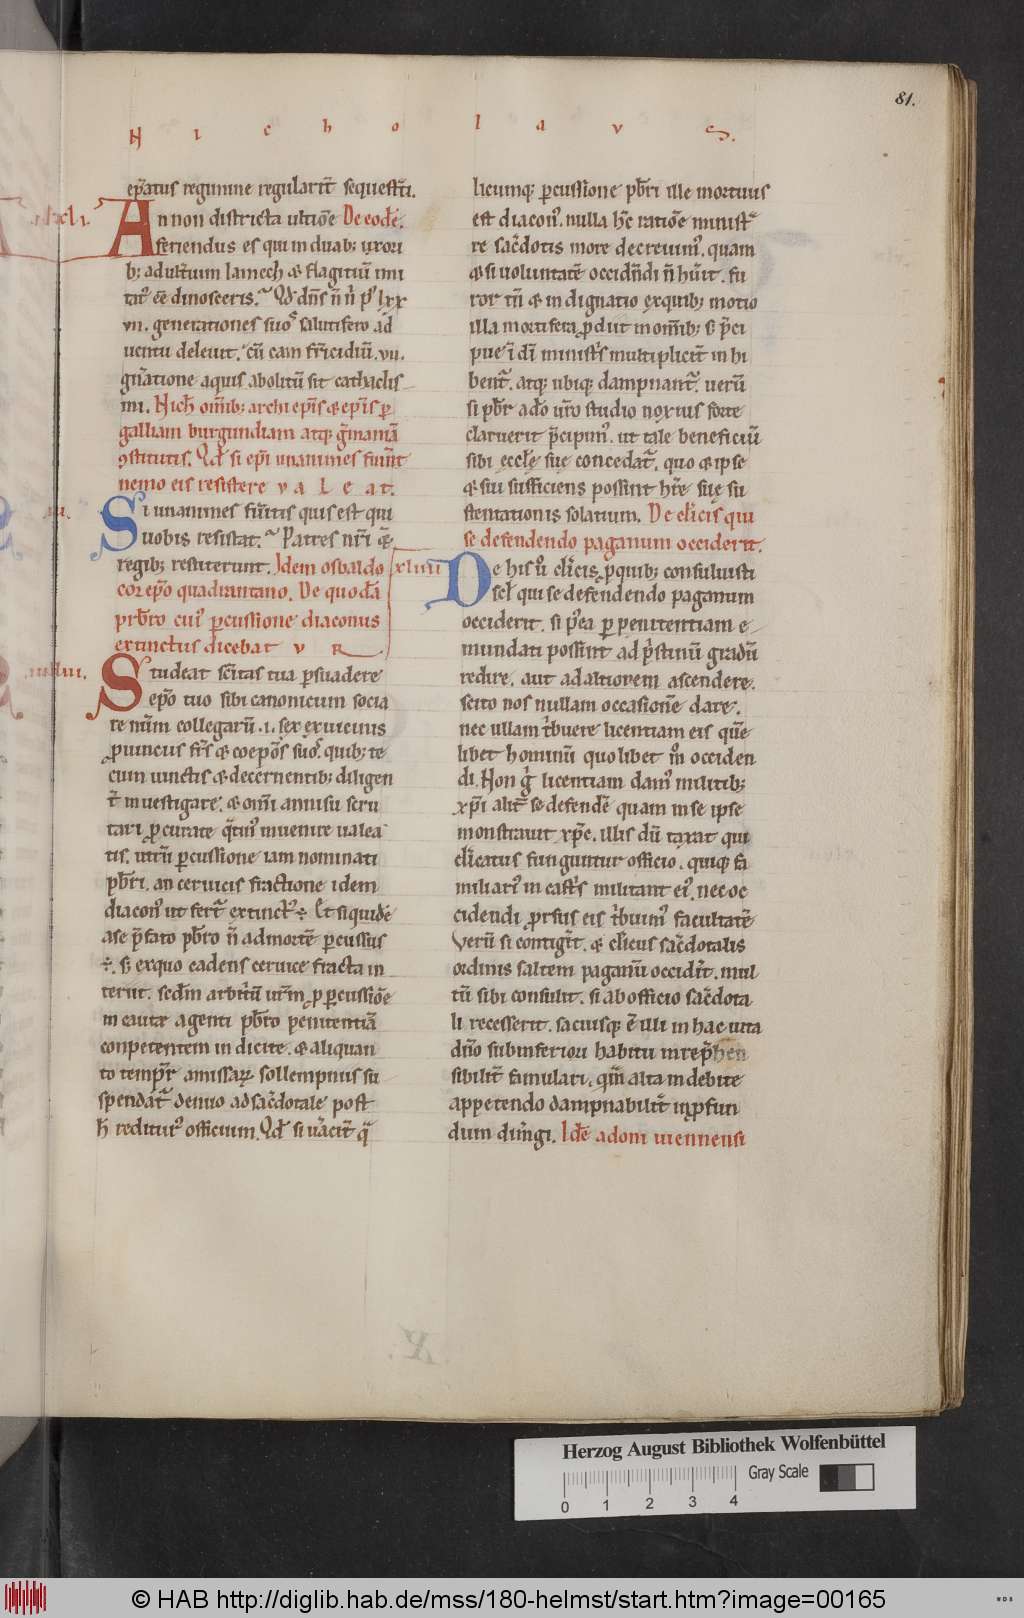 81.
N i c h o l a v s.
ep̄atus regimine regularit̄ sequest̄ri.
An non districta ultiōe De eodē.
feriendus es qui in duab; uxori
b; adult̄ium lamech & flagitiū imi
tat᷒ eē dinosceris. Qđ dn̄s
vii. generationes suo salutifero ad
uentu deleuit. cū eam fr̄icidiū. vii.
gn̄atione aquis abolitū sit cathaclis
mi. Nich om̄ib; archiep̄is & ep̄is p̄
galliam burgundiam atq; ḡmaniā
ꝯstitutis. Qđ si ep̄i unanimes fuīnt
nemo eis resistere v a l e a t.
Si unanimes fuīitis quis est qui
uobis resistat. Patres nr̄i
regib; restiterunt. Idem osbaldo
corep̄o quadrantano. De quodā
pr̄bro cui᷒ p̄cussione diaconus
extinctus dicebat v R
Studeat sc̄itas tua p̄suadere
ep̄o tuo sibi canonicum socia
re num̄ collegarū .i. sex ex uicinis
ꝓuinciis fr̄s & coep̄os suos. quib; te
cum uinctis & decernentib; diligen
t̄ inuestigare. & om̄i annisu scru
tari ꝓcurate q̄tin᷒ inuenire ualea
tis. utrū p̄cussione iam nominati
pb̄ri. an ceruicis fractione idem
diacon᷒ ut fert᷒ extinct᷒ ÷ Et siquidē
a se p̄fato pb̄ro n̄ ad mortē p̄cussus
÷. s; ex quo cadens ceruice fracta in
teriit. sed̄m arbit̄ū ur̄m ꝓ p̄cussiōe
in caute agenti pb̄ro penitentiā
conpetentem in dicite. & aliquan
to tempr̄ a missarꝝ sollempniis su
spendat᷒ denuo ad sac̄dotale post
h reditur᷒ officium. Qđ si uacit̄ q̄
licumq; p̄cussione pb̄ri ille mortuus
est diacon᷒. nulla hc̄ ratiōe minist
re sac̄dotis more decreuim᷒. quam
& si uoluntatē occidn̄di n̄ hūit. fu
ror tn̄ & indignatio exquib; motio
illa mortifera ꝓdiit mom̄ib; s; p̄ci
pue ī dī minist̄s multiplicit̄ in hi
bent᷒. atq; ubiq; dampnant᷒. uerū
si pb̄r ado ur̄o studio noxius forte
claruerit p̄cipim᷒. ut tale beneficiū
sibi ecclę suę concedat᷒. quo & ipse
& sui sufficiens possint hr̄e suę su
stentationis solatium. De cl̄icis qui
se defendendo paganum occiderit.
xliiii De his u̇ cl̄icis ꝓquib; consuluisti
scł qui se defendendo paganum
occiderit. si p̄ea p̄ penitentiam e
mundati possint ad p̄stinū gradū
redire. aut ad altiorem ascendere.
scito nos nullam occasionē dare.
nec ullam tb̄uere licentiam eis quē
libet hominū quolibet m̊ occiden
di. Non g̊ licentiam dam᷒ militib;
xp̄i alit̄ se defendē quam in se ipse
monstrauit xp̄c. illis dū taxat qui
cl̄icatus funguntur officio. quiq; fa
miliari᷒ in cast̄s militant ei᷒. nec oc
cidendi ꝓrsus eis tb̄uim᷒ facultatē
Verū si contigīt. & cl̄icus sac̄dotalis
ordinis saltem paganū occidīt. mul
tū sibi consulit. si ab officio sac̄dota
li recesserit. sacuisq; ē illi in hac uita
dn̄o sub inferiori habitu inrep̄hen
sibilit̄ famulari. qm̄ alta indebite
appetendo dampnabilit̄ in ꝓfun
dum dim̄gi. Idē adoni uiennensi
Herzog August Bibliothek Wolfenbüttel
Gray Scale
0 1 2 3 4
© HAB http://diglib.hab.de/mss/180-helmst/start.htm?image=00165